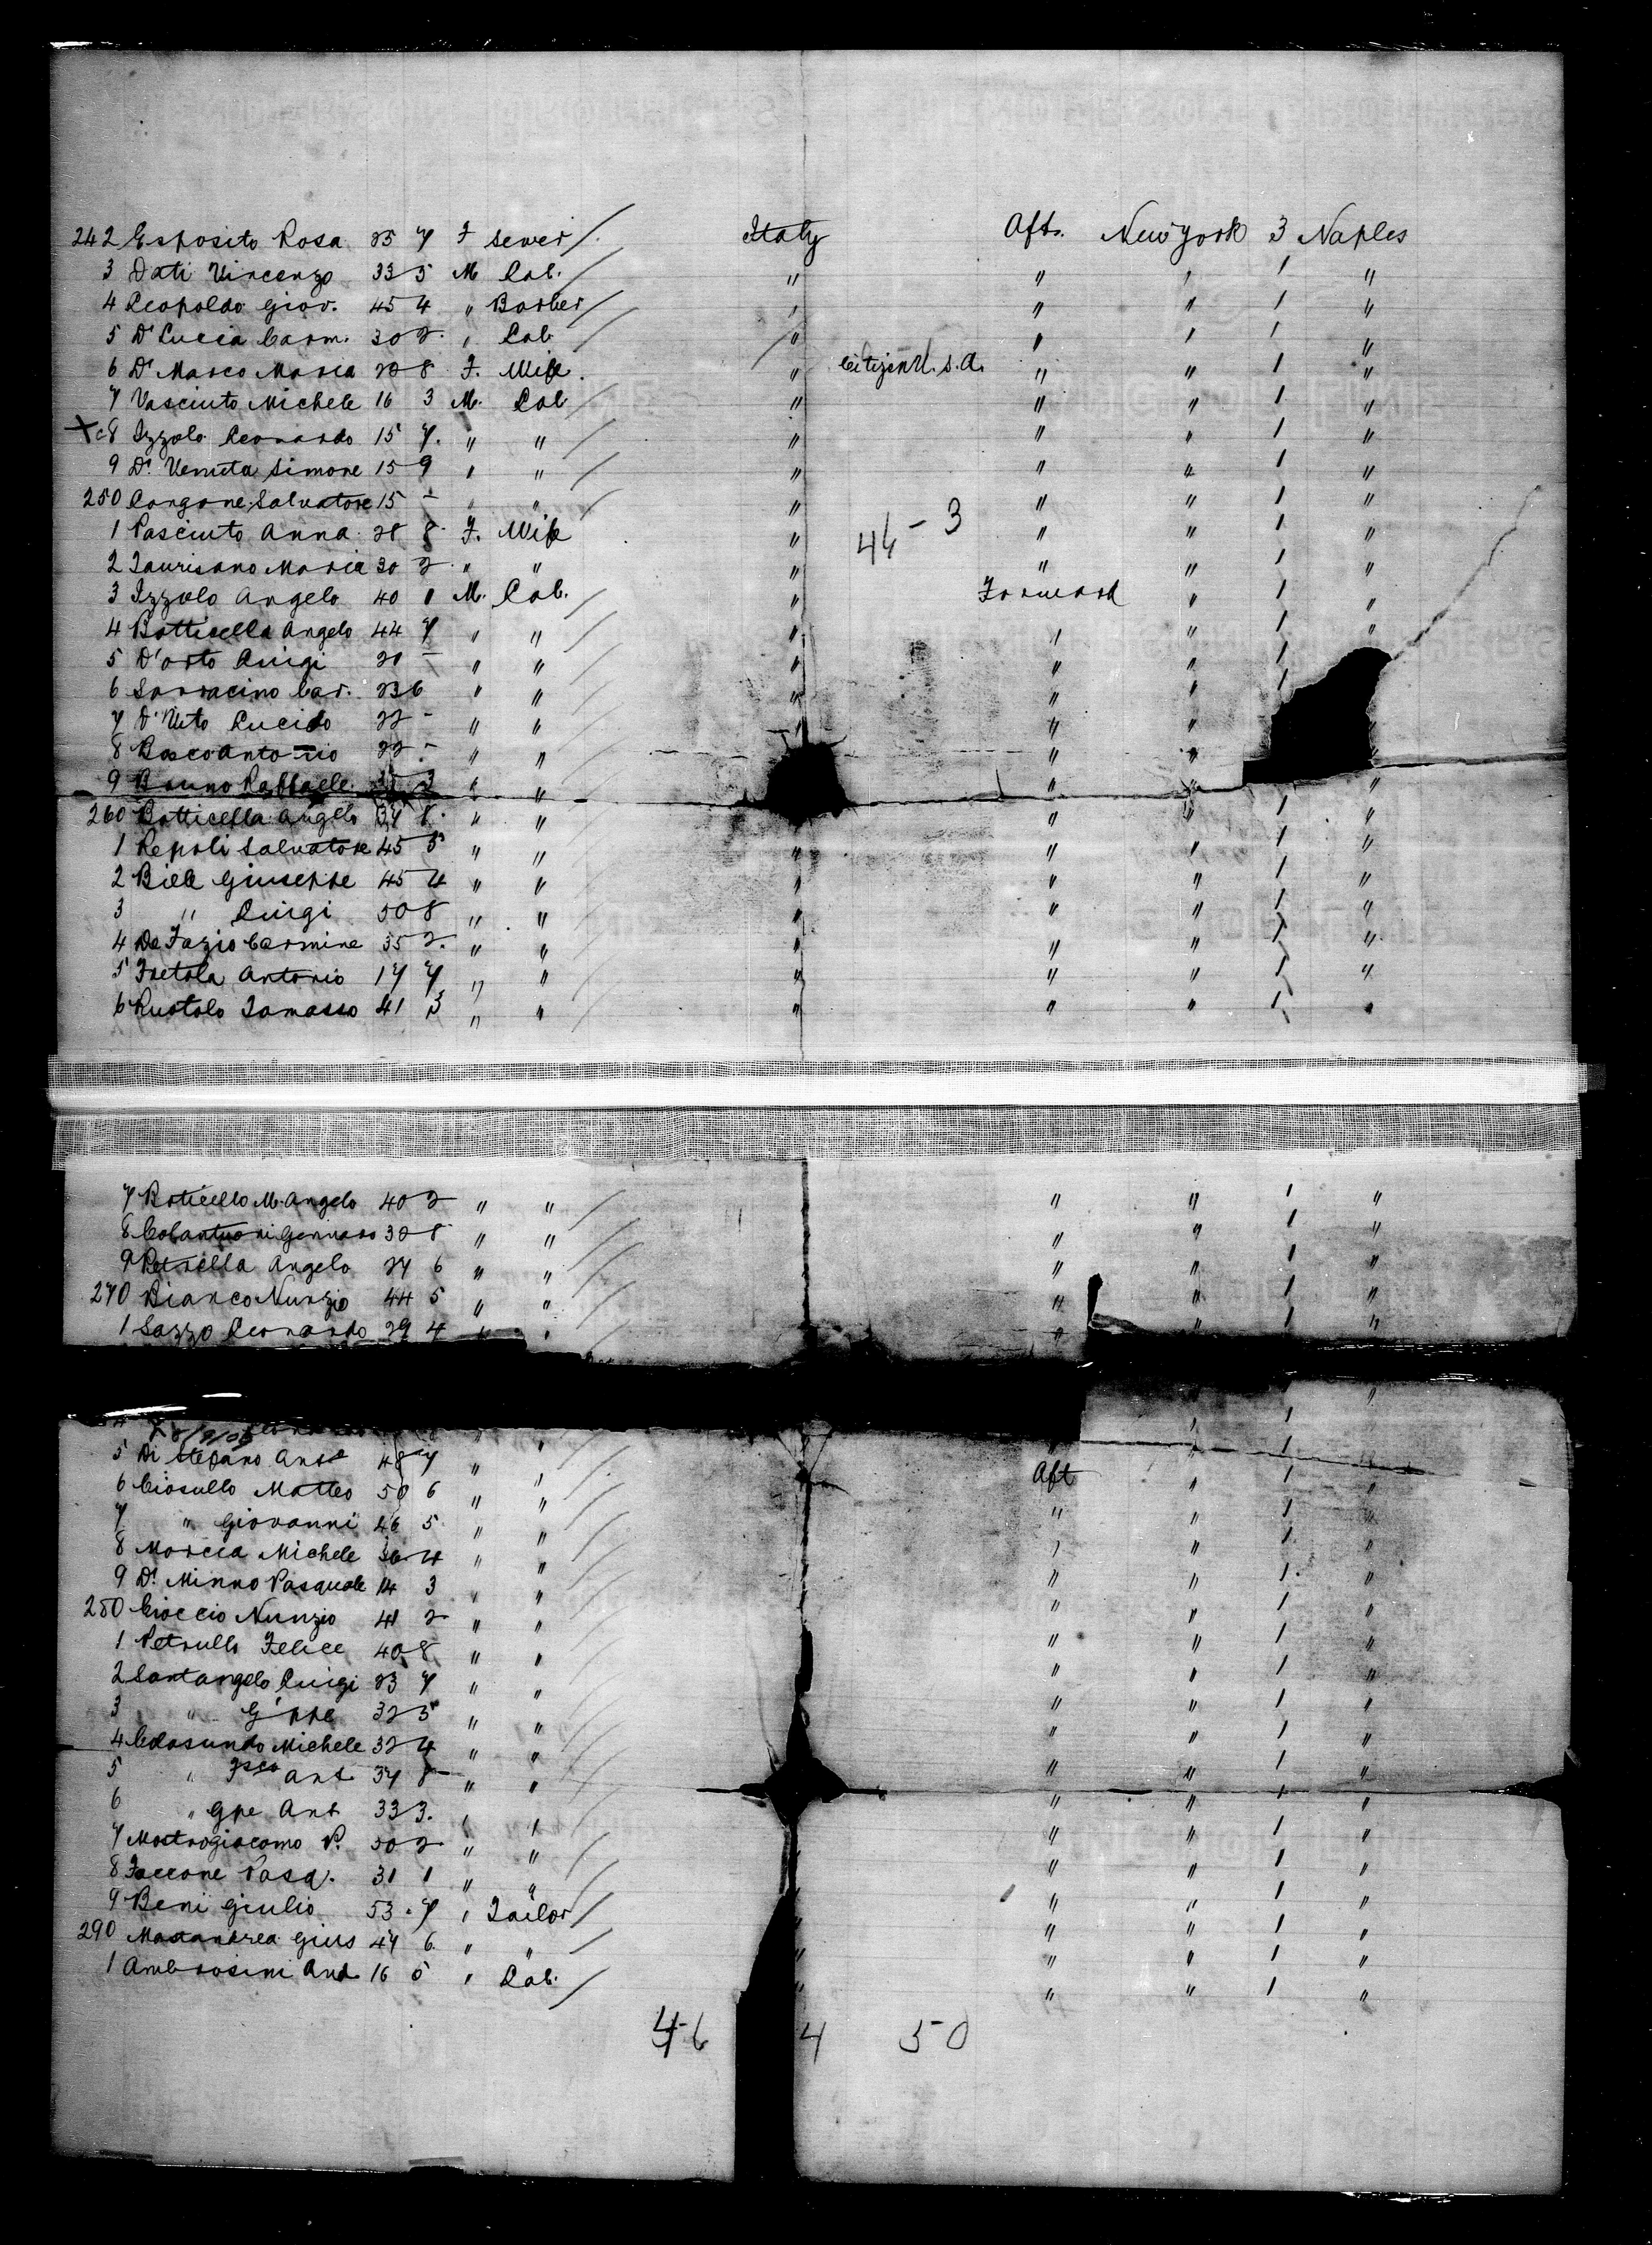 242 Esposito Rosa 25 7 F Sewer / Italy Aft. New York 3 Naples
3 Dati Vincenzo 33 5 M Lab. / " " " 1 "
4 Leopoldo Giov. 45 4 " Barber / " " " 1 "
5 Di Lucia Carm. 30 2 " Lab. / " " " 1 "
6 Di Marco Maria 20 8 F. Wife " Citizen U.S.A. " " 1 "
7 Vasciuto Michele 16 3 M. Lab / " " " 1 "
8 Izzolo Leonardo 15 7 " " / " " " 1 "
9 Di Venuta Simone 15 9 " " / " " " 1 "
250 Longone Salvatore 15 - " " / " " " 1 "
1 Pasciuto Anna 28 8 F. Wife " 44-3 " " 1 "
2 Taurisano Maria 30 2 " " " " " 1 "
3 Izzolo Angelo 40 1 M. Lab. / " Forward " 1 "
4 Botticella Angelo 44 7 " " / " " " 1 "
5 D'orto Luigi 20 - " " / " " " 1
6 Sarracino Car. 23 6 " " / " " " 1
7 D'Vito Lucido 22 - " " / " " " "
8 Bosco Antonio 22 - " " / " " "
9 Bruno Raffaele 3 " " / " " "
260 Botticella Angelo 37 8 " " / " " 1 "
1 Repoli Salvatore 45 5 " " / " " " 1 "
2 Biele Giuseppe 45 4 " " / " " " 1 "
3 " Luigi 50 8 " " / " " " 1 "
4 De Fazio Carmine 35 2 " " / " " " 1 "
5 Fretola Antonio 17 7 " " / " " " 1 "
6 Ruotolo Tomasso 41 3 " " / " " " 1 "
7 Boticello M. Angelo 40 2 " " / " " 1 "
8 Colantuoni Gennaro 30 8 " " / " " 1 "
9 Petrella Angelo 27 6 " " / " " 1 "
270 Bianco Nunzio 44 5 " " / " " 1 "
1 Sazzo Leonardo 29 4 " " " " 1 "
5 Di Stefano Ant 48 7 " " / " 1
6 Ciosullo Matteo 50 6 " " / Aft " 1 "
7 " Giovanni 46 5 " " / " " 1 "
8 Morcia Michele 36 4 " " / " " 1 "
9 Di Minno Pasquale 14 3 " " / " " 1 "
280 Cioccio Nunzio 41 2 " " / " " 1 "
1 Petrullo Felice 40 8 " " / " " 1 "
2 Santangelo Luigi 23 7 " " / " " 1 "
3 " Gppe 32 5 " " / " " 1 "
4 Colasundo Michele 32 4 " " / " " 1 "
5 " Fsco Ant 37 8 " " / " " 1 "
6 " Gpe Ant 33 3. " " / " " 1 "
7 Mastrogiacomo P. 50 2 " " / " " 1 "
8 Iaccone Pasq. 31 1 " " / " " 1 "
9 Beni Giulio 53 7 " Tailor / " " 1 "
290 Mastandrea Gius 47 6 " " / " " 1 "
1 Ambrosini And. 16 5 " Lab. / " " 1 "
46 4 50